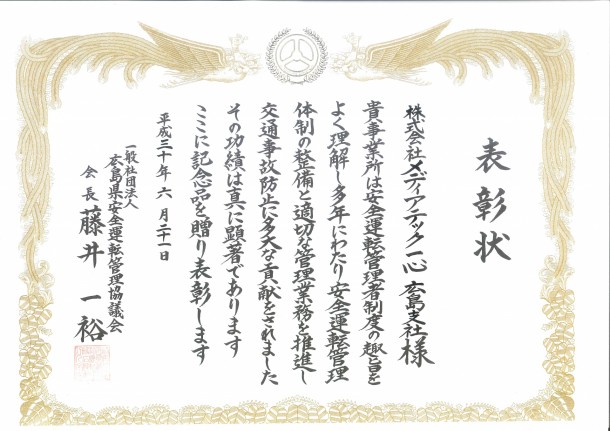 表彰状
株式会社メディアテック一心 広島支社様
貴事業所は安全運転管理者制度の趣旨を
よく理解し多年にわたり安全運転管理
体制の整備と適切な管理業務を推進し
交通事故防止に多大な貢献をされました
その功績は真に顕著であります
ここに記念品を贈り表彰します
平成三十年六月二十一日
一般社団法人
広島県安全運転管理協議会
会長 藤井一裕